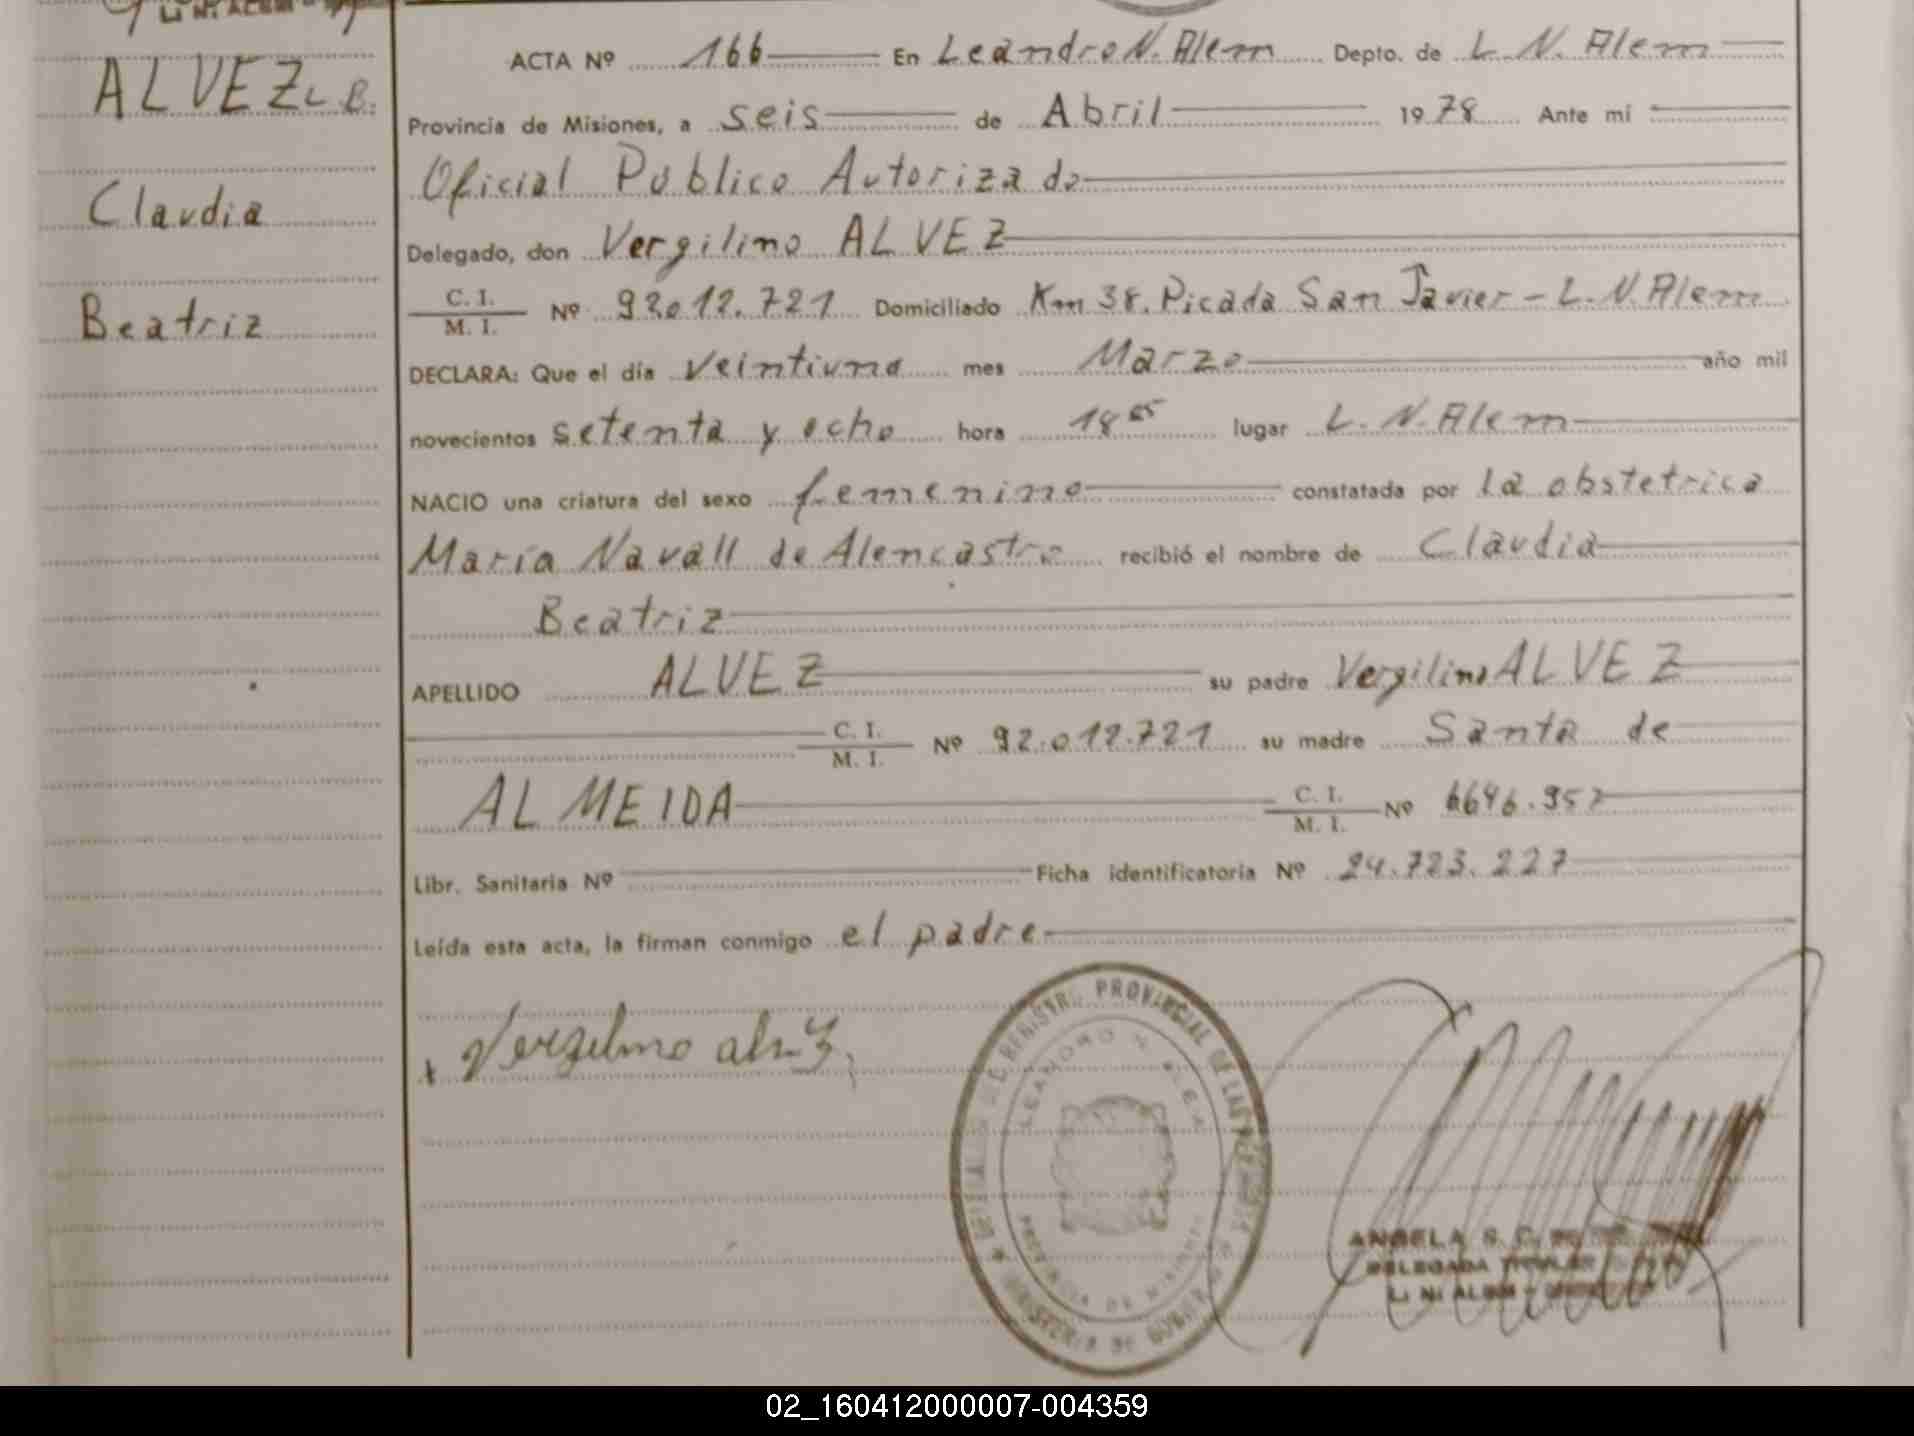 ALVEZ C. B.
Claudia
Beatriz
ACTA Nº 166 En Leandro N. Alem Depto. de L. N. Alem
Provincia de Misiones, a seis de Abril 1978 Ante mi
Oficial Público Autorizado
Delegado, don Vergilino ALVEZ
C. I.
M. I. Nº 92.012.721 Domiciliado Km 38. Picada San Javier - L. N. Alem
DECLARA: Que el día veintiuno mes Marzo año mil
novecientos setenta y ocho hora 18 05 lugar L. N. Alem
NACIO una criatura del sexo femenino constatada por la obstetrica
María Navall de Alencastro recibió el nombre de Claudia
Beatriz
APELLIDO ALVEZ su padre Vergilino ALVEZ
C. I.
M. I. Nº 92.012.721 su madre Santa de
ALMEIDA C. I.
M. I. Nº 6646.957
Libr. Sanitaria Nº Ficha identificatoria Nº 24.723.227
Leída esta acta, la firman conmigo el padre
REGISTRO PROVINCIAL DE LAS
LEANDRO N. ALEM
PROVINCIA DE MISIONES
MINISTERIO DE GOBIERNO
ANGELA S. C.
DELEGADA TITULAR
L. N. ALEM
02_160412000007-004359